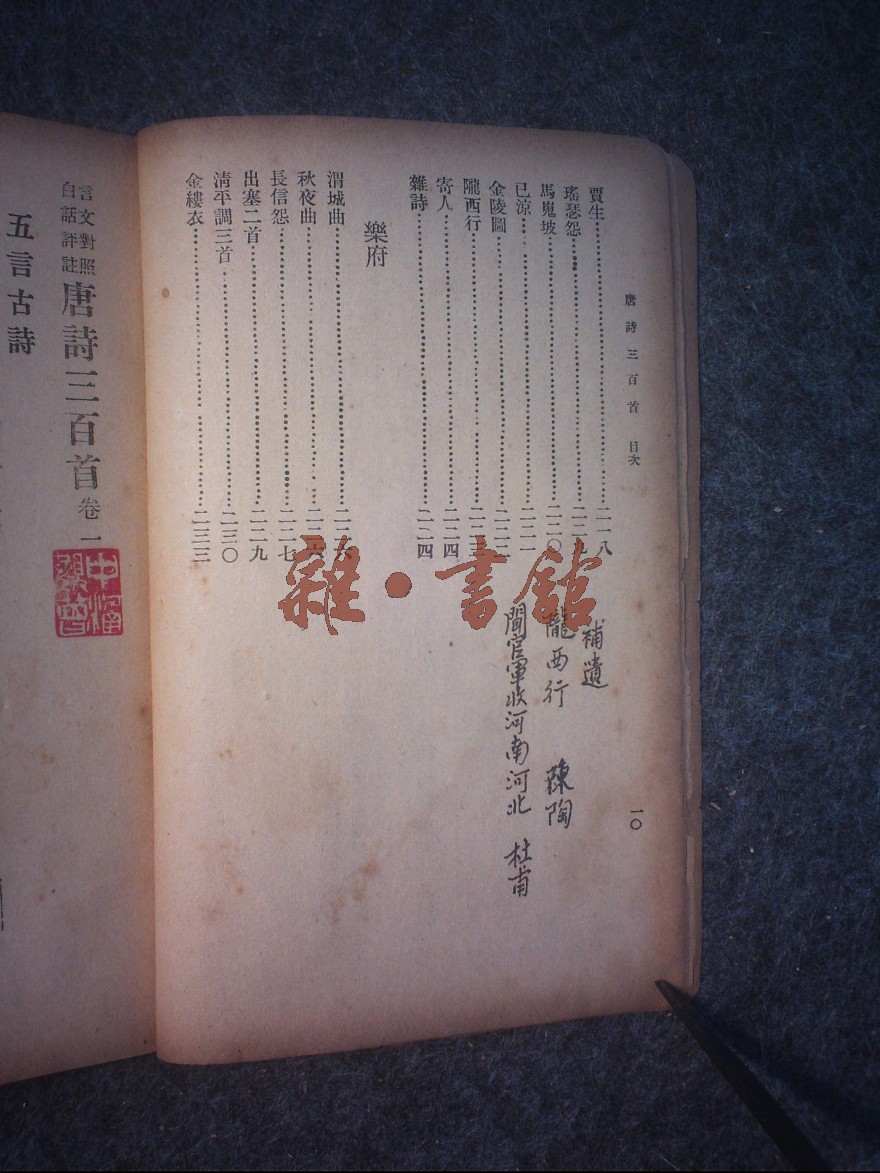 唐詩三百首 目次
一〇
賈生……二一八
瑤瑟怨……二一九
馬嵬坡……二二〇
已涼……二二一
金陵圖……二二二
隴西行……二二三
寄人……二二四
雜詩……二二四
樂府
渭城曲……二二六
秋夜曲……二二六
長信怨……二二七
出塞二首……二二九
清平調三首……二三〇
金縷衣……二三三
補遺
隴西行 陳陶
聞官軍收河南河北 杜甫
雜·書館
言文對照
白話評註
唐詩三百首卷一
五言古詩